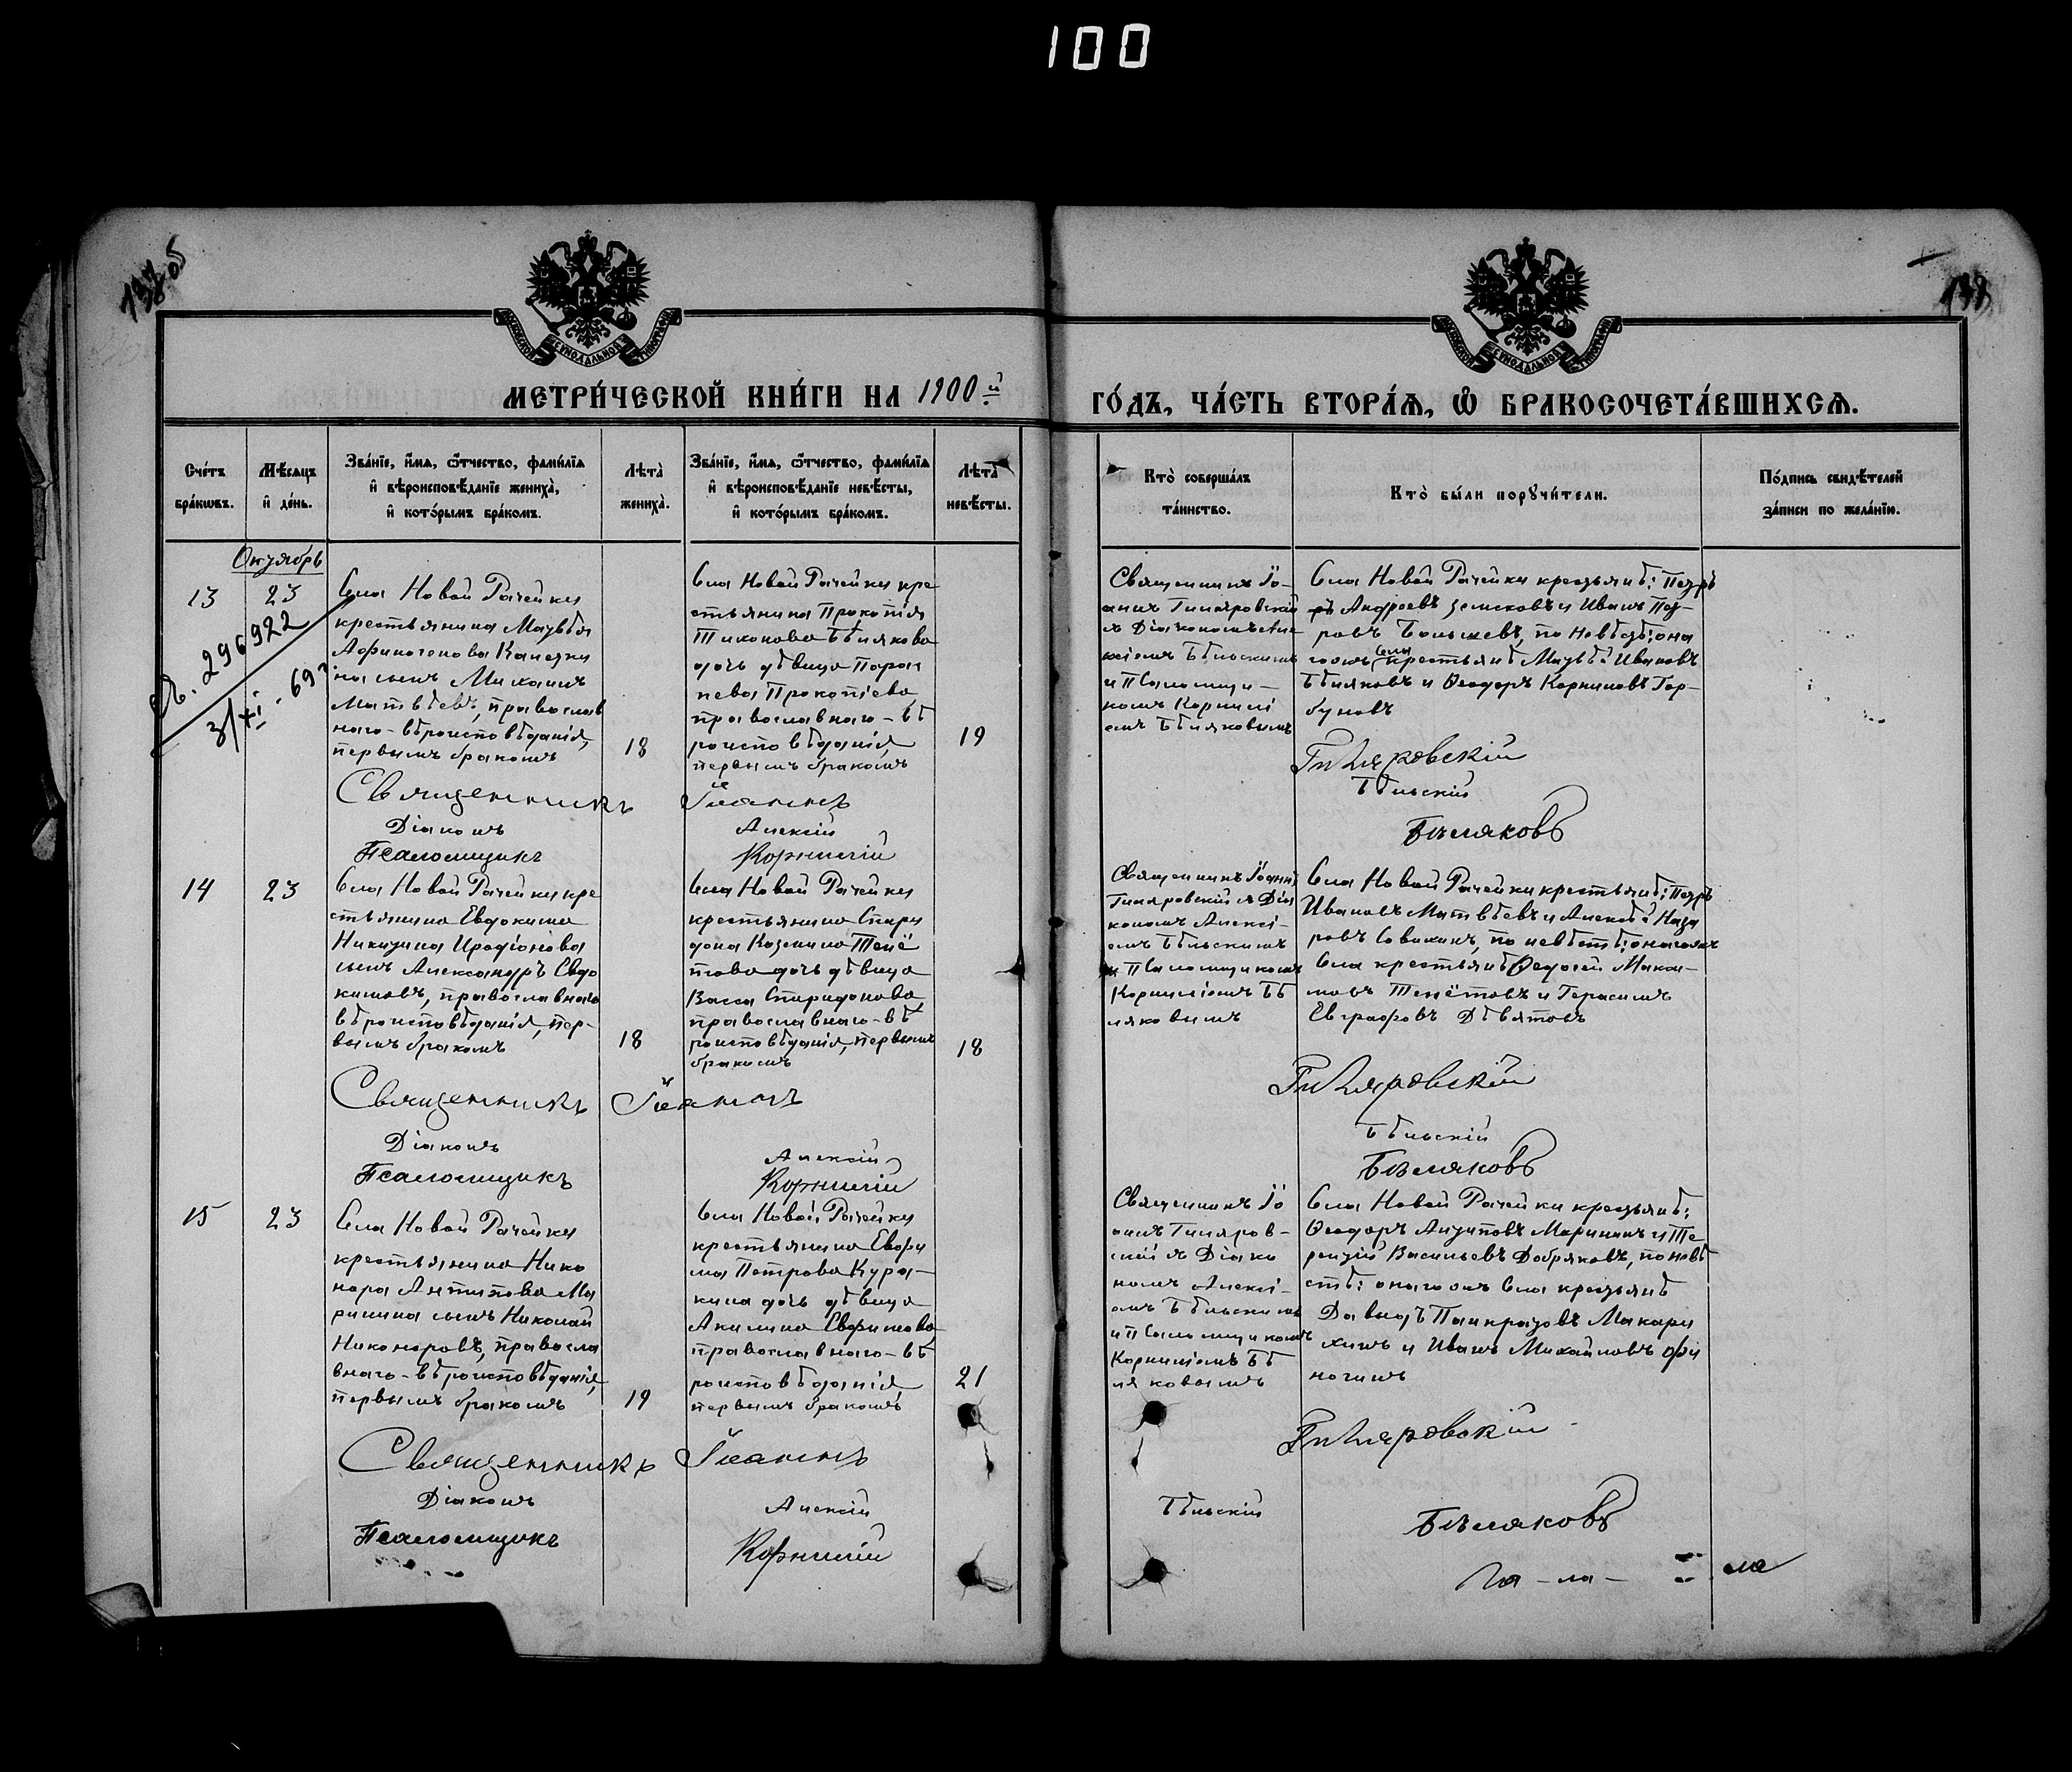 100
137 об
138
МЕТРИ́ЧЕСКОЙ КНИ́ГИ НА 1900й
ГО́ДЪ, ЧА́СТЬ ВТОРА́Ѧ, Ѽ БРАКОСОЧЕТА́ВШИХСѦ.
Сче́тъ
бра́кѡвъ.
Мѣ́сяцъ
и҆ де́нь.
Зва́нїе, и҆́мѧ, ѻ҆́тчество, фами́лїѧ
и҆ вѣроисповѣ́данїе жениха̀,
и҆ кото́рымъ бра́комъ.
Лѣ́та̀
жениха̀.
Зва́нїе, и҆́мѧ, ѻ҆́тчество, фами́лїѧ
и҆ вѣроисповѣ́данїе невѣ́сты,
и҆ кото́рымъ бра́комъ.
Лѣ́та̀
невѣ́сты.
Кто̀ соверша́лъ
та́инство.
Кто̀ бы́ли порꙋчи́тели.
По́дпись свидѣ́телей
за́писи по жела́нїю.
Октябрь
13
23
296922
3/XI - 69
Села Новой Рачейки
крестьянина Матвѣя
Афиногенова
на сынъ Михаилъ
Матвѣевъ, православ
наго-вѣроисповѣданія,
первымъ бракомъ
18
Села Новой Рачейки кре
стьянина Прокопія
Тихонова Бѣлякова
дочь дѣвица Парас
кева Прокопіева
православнаго-вѣ
роисповѣданія
первымъ бракомъ
19
Священникъ Іо-
аннъ Гиляровскій
съ Діакономъ Алек
сіемъ Бѣльскимъ
и Псаломщи-
комъ Корнилі
емъ Бѣляковымъ
Села Новой Рачейки крестьянѣ: Петръ
Андреевъ Земсковъ и Иванъ Пет-
ровъ по невѣстѣ: она
гожъ села крестьянѣ Матвѣй Ивановъ
Бѣляковъ и Ѳеодоръ Корниловъ Гор-
буновъ
Священникъ Іоаннъ Гиляровскій
Діаконъ Алексій Бѣльскій
Псаломщикъ Корнилій Бѣляковъ
14
23
Села Новой Рачейки кре
стьянина Евдокима
Никитина Иродіонова
сынъ Александръ Евдо
кимовъ, православнаго
вѣроисповѣданія, пер-
вымъ бракомъ
18
Села Новой Рачейки
крестьянина Спири
дона Козьмина Тенё
това дочь дѣвица
Васса Спиридонова
православнаго-вѣ
роисповѣданія, первымъ
бракомъ
18
Священникъ Іоаннъ
Гиляровскій съ Діа
кономъ Алексі-
емъ Бѣльскимъ
и Псаломщикомъ
Корниліемъ Бѣ
ляковымъ
Села Новой Рачейки крестьянѣ: Петръ
Ивановъ Матвѣевъ и Алексѣй Наза
ровъ Савихинъ, по невѣстѣ: онагожъ
Села крестьянѣ Ѳедосей Макси-
мовъ Тенётовъ и Герасимъ
Евграфовъ Дѣвятовъ
Священникъ Іоаннъ Гиляровскій
Діаконъ Алексій Бѣльскій
Псаломщикъ Корнилій Бѣляковъ
15
23
Села Новой Рачейки
крестьянина Нико
нора Антипова Ма
ринина сынъ Николай
Никоноровъ, правосла
внаго-вѣроисповѣданія,
первымъ бракомъ
19
Села Новой Рачейки
крестьянина Евфи
ма Петрова Кура-
кина дочь дѣвица
Акилина Евфимова,
православнаго-вѣ
роисповѣданія
первымъ бракомъ
21
Священникъ Іо
аннъ Гиляров-
скій съ Діако
номъ Алексі-
емъ Бѣльскимъ
и Псаломщикомъ
Корниліемъ Бѣ
ляковымъ
Села Новой Рачейки крестьянѣ:
Ѳеодоръ Антиповъ Марининъ и Те
рентій Васильевъ Добряковъ, по невѣ
стѣ: онагожъ Села крестьянѣ
Давидъ Панкратовъ Макари
хинъ и Иванъ Михайловъ Афи
ногинъ
Священникъ Іоаннъ Гиляровскій
Діаконъ Алексій Бѣльскій
Псаломщикъ Корнилій Бѣляковъ